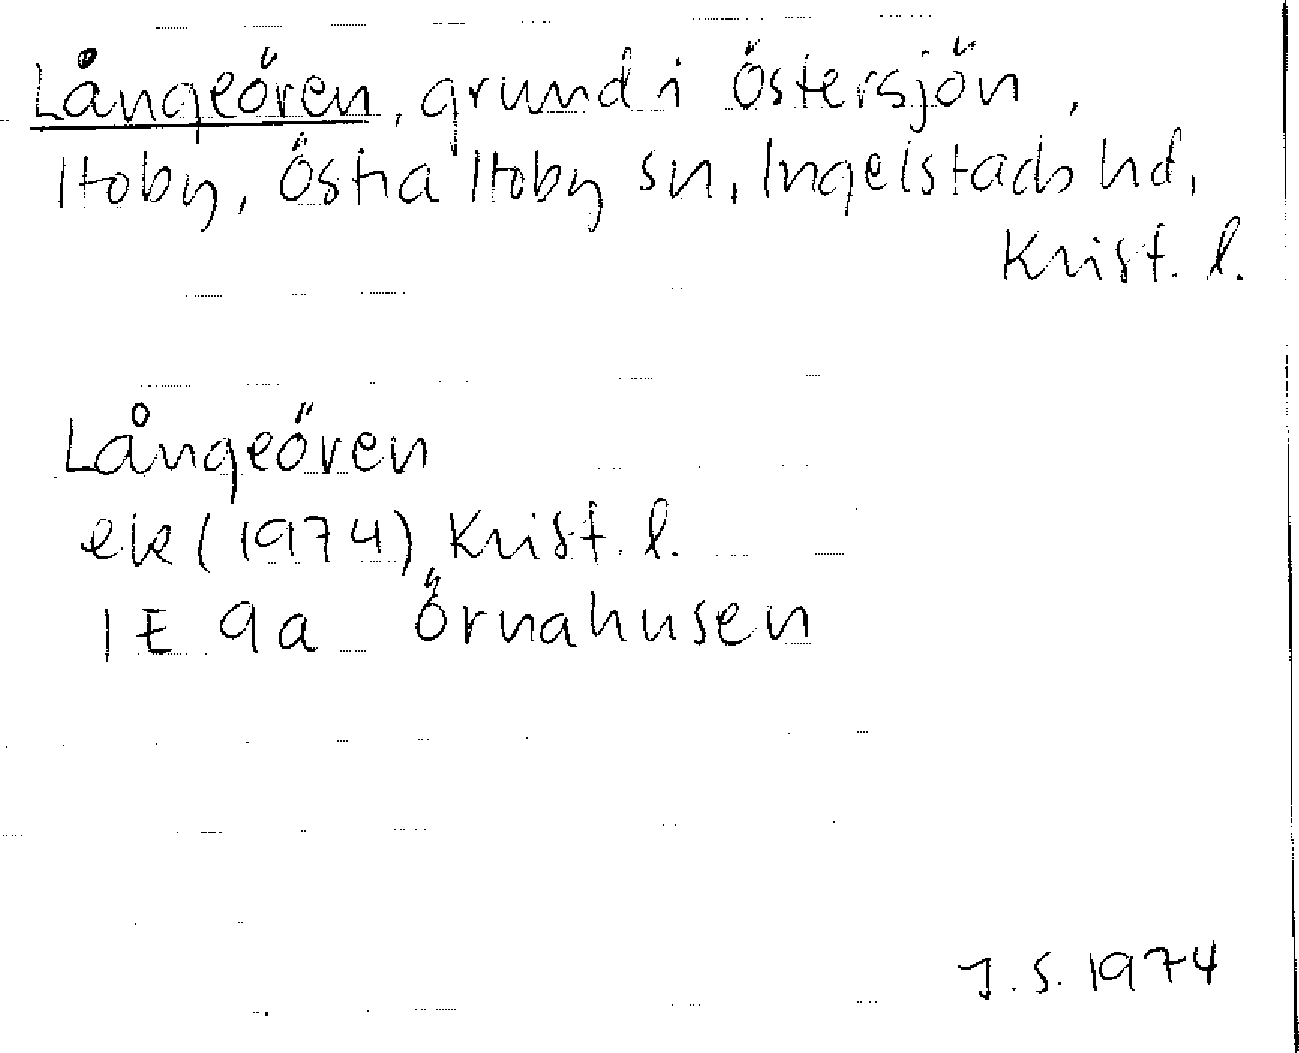 Långeören, grund i Östersjön,
Hoby, Östra Hoby sn, Ingelstads hd,
Krist. l.
Långeören
ek (1974) Krist. l.
1 E 9a Örnahusen
J.S. 1974